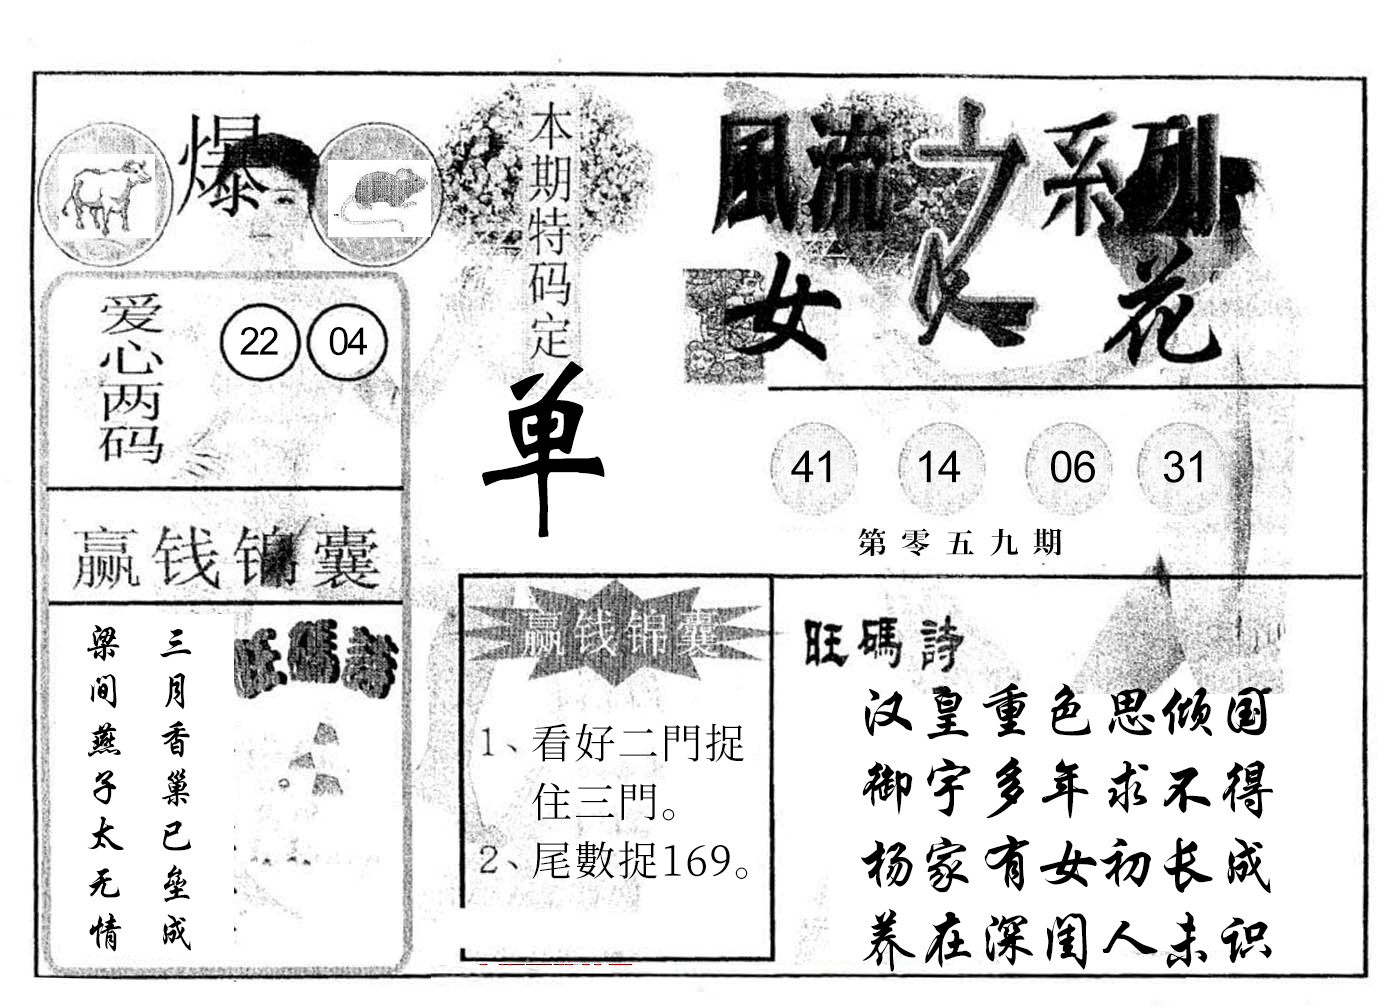 爆
本期特码定
单
風流之系列
女人花
爱心两码
22 04
41 14 06 31
第零五九期
赢钱锦囊
三月香巢已垒成
梁间燕子太无情
旺碼詩
赢钱锦囊
1、看好二門捉
住三門。
2、尾數捉169。
旺碼詩
汉皇重色思倾国
御宇多年求不得
杨家有女初长成
养在深闺人未识